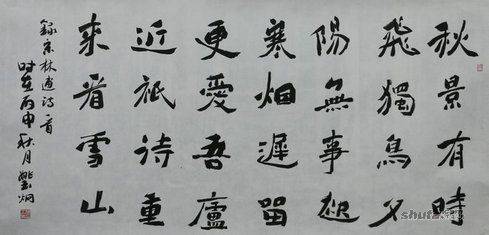 秋景有時
飛獨鳥夕
陽無事起
寒烟遲留
更愛吾廬
近祇待重
來看雪山
錄宋林逋詩一首
时在丙申秋月